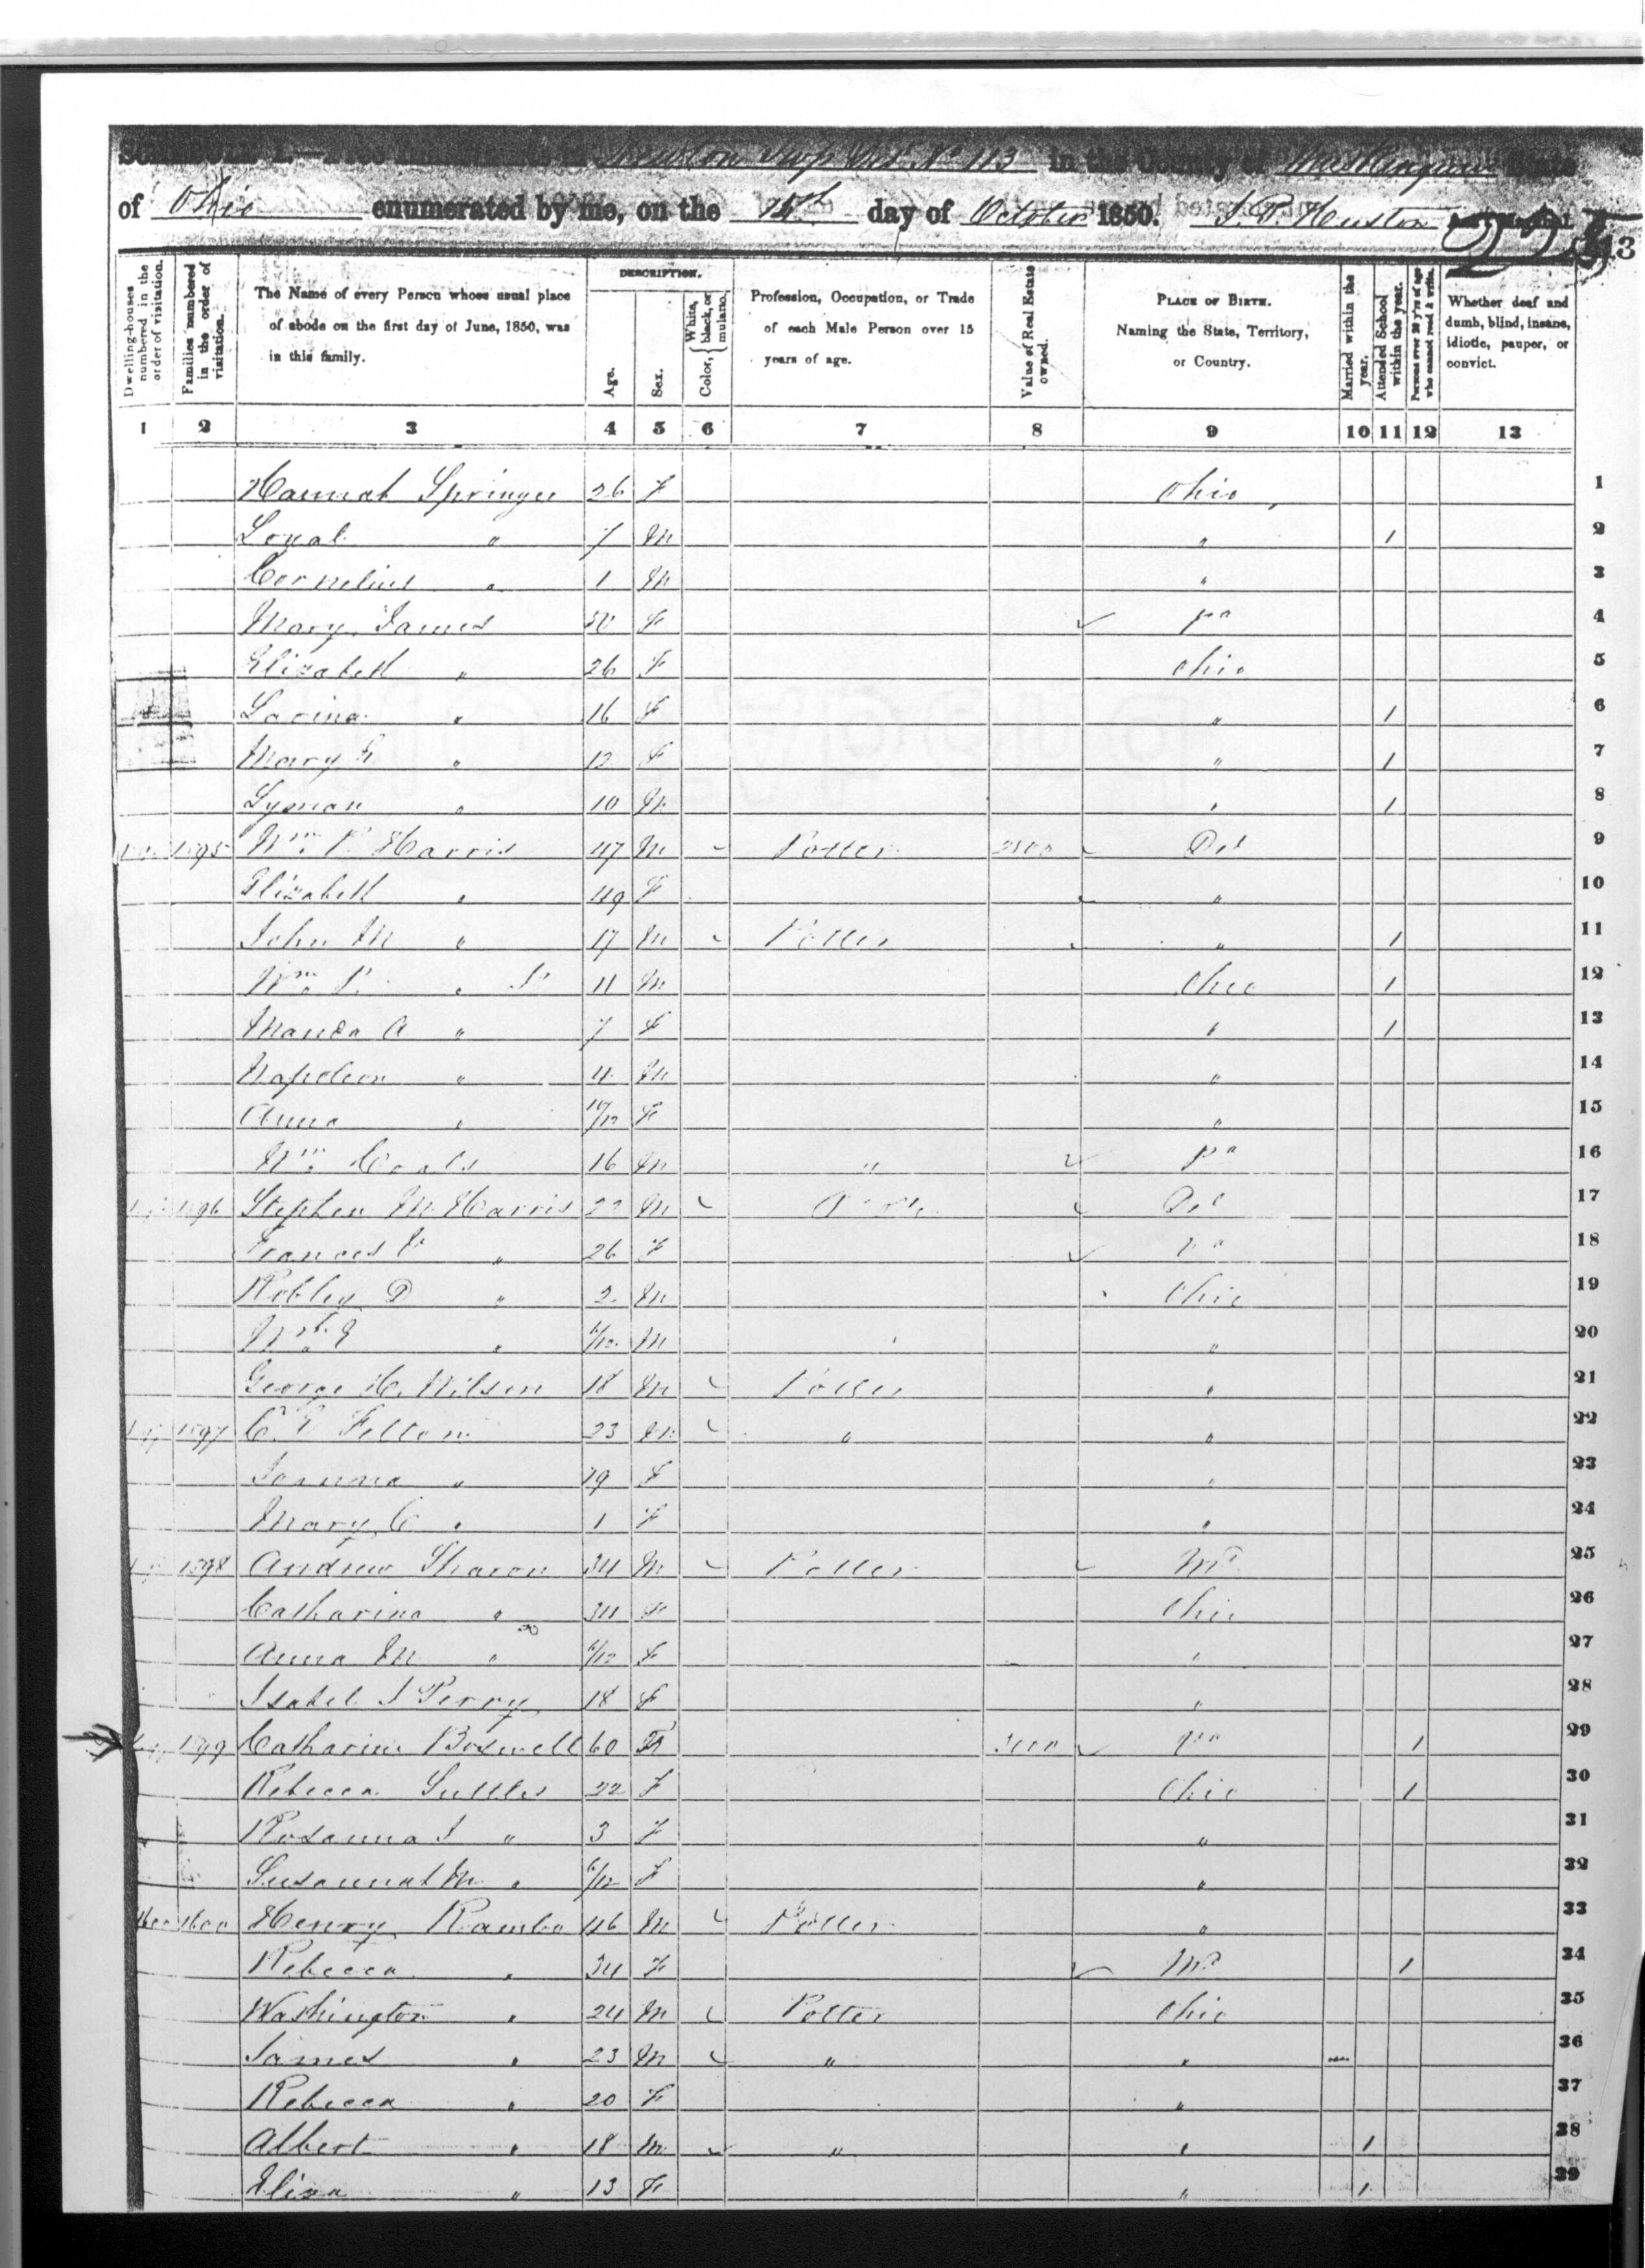 Newton Twp Dct. No 113 in the County of Muskingum State
of Ohio enumerated by me, on the 15th day of October 1850. S. P. Huston
Dwelling-houses numbered in the order of visitation.
Families numbered in the order of visitation.
The Name of every Person whose usual place of abode on the first day of June, 1850, was in this family.
DESCRIPTION.
Age.
Sex.
Color, { White, black, or mulatto.
Profession, Occupation, or Trade of each Male Person over 15 years of age.
Value of Real Estate owned.
PLACE OF BIRTH. Naming the State, Territory, or Country.
Married within the year.
Attended School within the year.
Persons over 20 y'rs of age who cannot read & write.
Whether deaf and dumb, blind, insane, idiotic, pauper, or convict.
1 2 3 4 5 6 7 8 9 10 11 12 13
Hannah Springer 26 F Ohio 1
Loyal " 7 M " 1 2
Cornelius " 1 M " 3
Mary James F Pa 4
Elizabeth " 26 F Ohio 5
Lavina " 16 F " 1 6
Mary E " 12 F " 1 7
Lyman " 10 M " 1 8
1595 Wm P. Harris 47 M Potter Del 9
Elizabeth " 49 F " 10
John M " 17 M Potter " 1 11
Wm P. " 11 M Ohio 1 12
Manda A " 7 F " 1 13
Napoleon " 4 M " 14
Anna " 10/12 F " 15
Wm Coats 16 M " Pa 16
1596 Stephen M. Harris 22 M Del 17
Frances " 26 F Pa 18
Robley D " 2 M Ohio 19
" 6/12 M " 20
George H. Wilson 18 M Potter " 21
1597 Felton 23 M " " 22
Joanna " 19 F " 23
Mary C " 1 F " 24
1598 Andrew Sharon 34 M Potter Md 25
Catharine " 34 F Ohio 26
Anna M " 6/12 F " 27
Isabel J Perry 18 F " 28
1599 Catharine Boswell 60 F 3000 Pa 1 29
Rebecca Suttles 22 F Ohio 1 30
Rosanna J " 3 F " 31
Susannah M " 6/12 F " 32
1600 1600 Henry Rambo 46 M Potter " 33
Rebecca " 34 F Md 1 34
Washington " 24 M Potter Ohio 35
James " 23 M " " 36
Rebecca " 20 F " 37
Albert " 18 M " " 1 38
Eliza " 13 F " 1 39